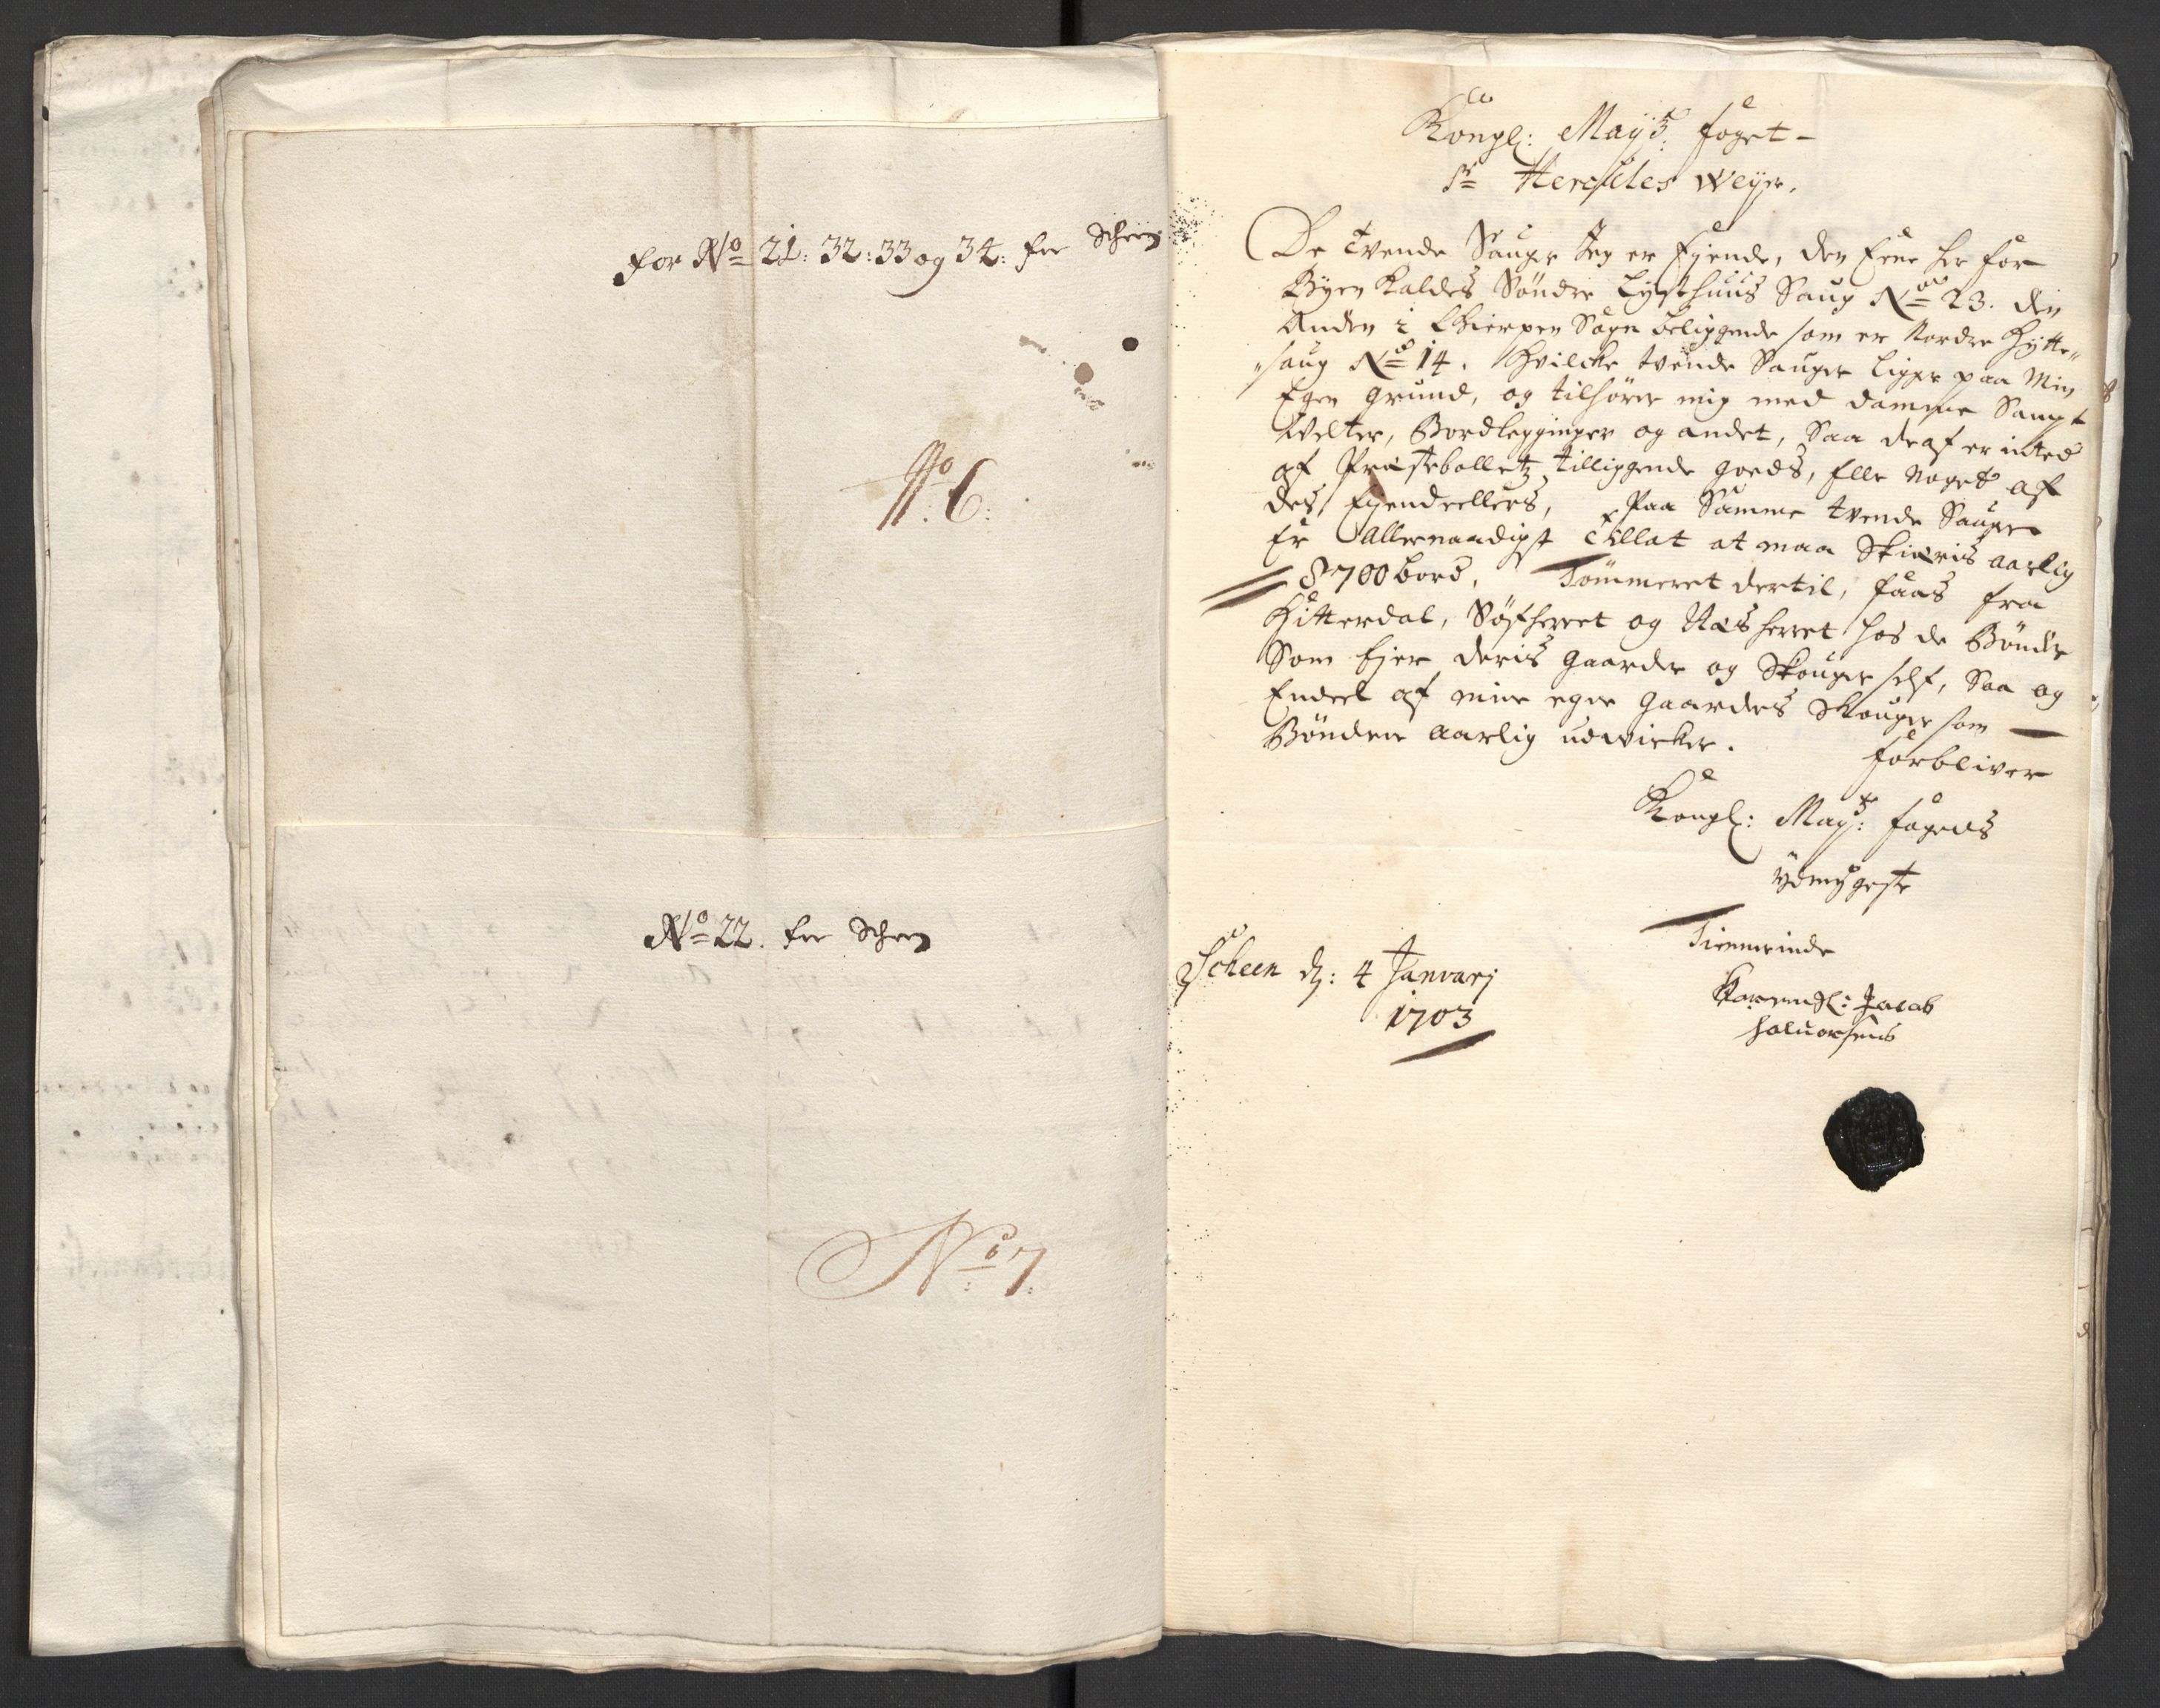 for No 21: 32: 33 og 34: fra Scheen
No 6:
No 22. fra Scheen
No 7.
Kongl: Mayts: foget
Sr Hercules Weyer.
De Tvende Sauger Jeg er Ejende, den Eene her for
Byen Kaldes Søndre Lysthuus Saug No 23. den
Anden i Gierpen Sogn beliggende som er Nordre Hytte-
saug No 14. Hvilche tvende Sauger ligger paa Min
Egen grund, og tilhører mig med damme Sampt
Velter, Bordlegginger og andet, Saa deraf er inted
af Præsteboletz tilliggende goeds, Eller noget af
des Ejendeellers, Paa Samme tvende Sauger
Er Allernaadigst Tillat at maa Skiæris aarlig
8700 bord. Tømmeret dertil, faaes fra
Hitterdal, Søfherret og Næsherret hos de Bønder
Som Ejer deris gaarder og Skouger self, Saa og
Endeel af mine egne gaarders Skouger som
Bønderne aarlig udvircker.
forbliver
Kongl: Mayts: fogeds
ydmygeste
Tienerinde
Jacob
Haluorsens
Scheen d: 4 Januarj
1703